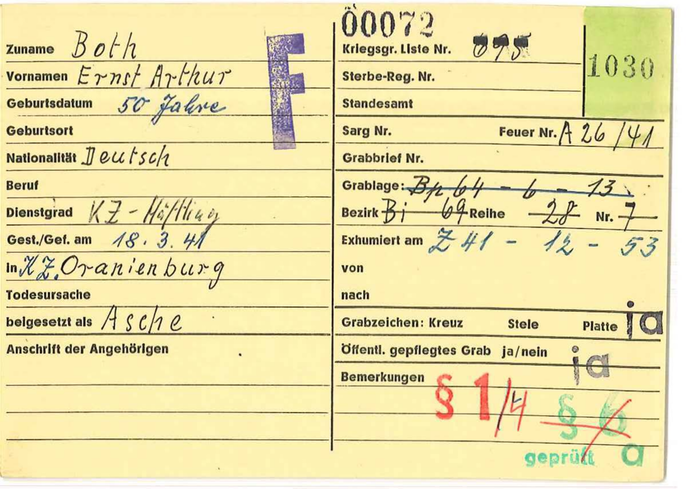 Zuname Both
Vornamen Ernst Arthur
Geburtsdatum 50 Jahre
Geburtsort
Nationalität Deutsch
Beruf
Dienstgrad KZ-Häftling
Gest./Gef. am 18.3.41
In KZ. Oranienburg
Todesursache
beigesetzt als Asche
Anschrift der Angehörigen
F
00072
Kriegsgr. Liste Nr. 095
1030
Sterbe-Reg. Nr.
Standesamt
Sarg Nr. Feuer Nr. A 26/41
Grabbrief Nr.
Grablage: Bp 64 - 6 - 13
Bezirk Bi 69 Reihe 28 Nr. 7
Exhumiert am Z 41 - 12 - 53
von
nach
Grabzeichen: Kreuz Stele Platte ja
Öffentl. gepflegtes Grab ja/nein ja
Bemerkungen § 1/4 § 6
geprüft a